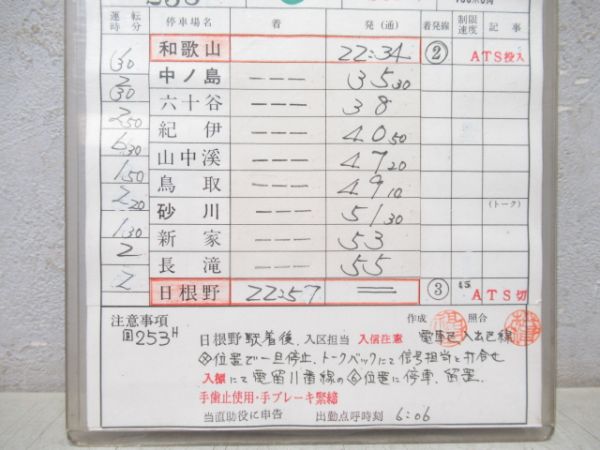 運転時分 停車場名 着 発(通) 着発線 制限速度 記事
和歌山 22:34 ② ATS投入
1/30 中ノ島 --- 35 30
2/30 六十谷 --- 38
2 50 紀伊 --- 40 50
6 30 山中溪 --- 47 20
1 50 鳥取 --- 49 10
2 20 砂川 --- 51 30 (トーク)
1 30 新家 --- 53
2 長滝 --- 55
2 日根野 22:57 ═ ③ 45 ATS切
注意事項 作成 照合
回253H 日根野駅着後、入区担当 入信注意 電車区入出区線
位置で一旦停止、トークバックにて信号担当と打合せ
入標にて電留11番線の⑥位置に停車、留置。
手歯止使用・手ブレーキ緊締
当直助役に申告 出勤点呼時刻 6:06